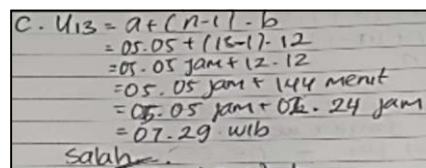 C. U13 = a + (n-1) . b
= 05.05 + (13-1) . 12
= 05.05 jam + 12.12
= 05.05 jam + 144 menit
= 05.05 jam + 02.24 jam
= 07.29 wib
Salah